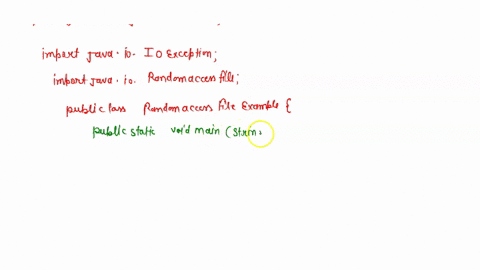 import java.io. IOException;
import java.io. Randomaccessfile;
public class Randomaccess file Example {
public static void main (Strin